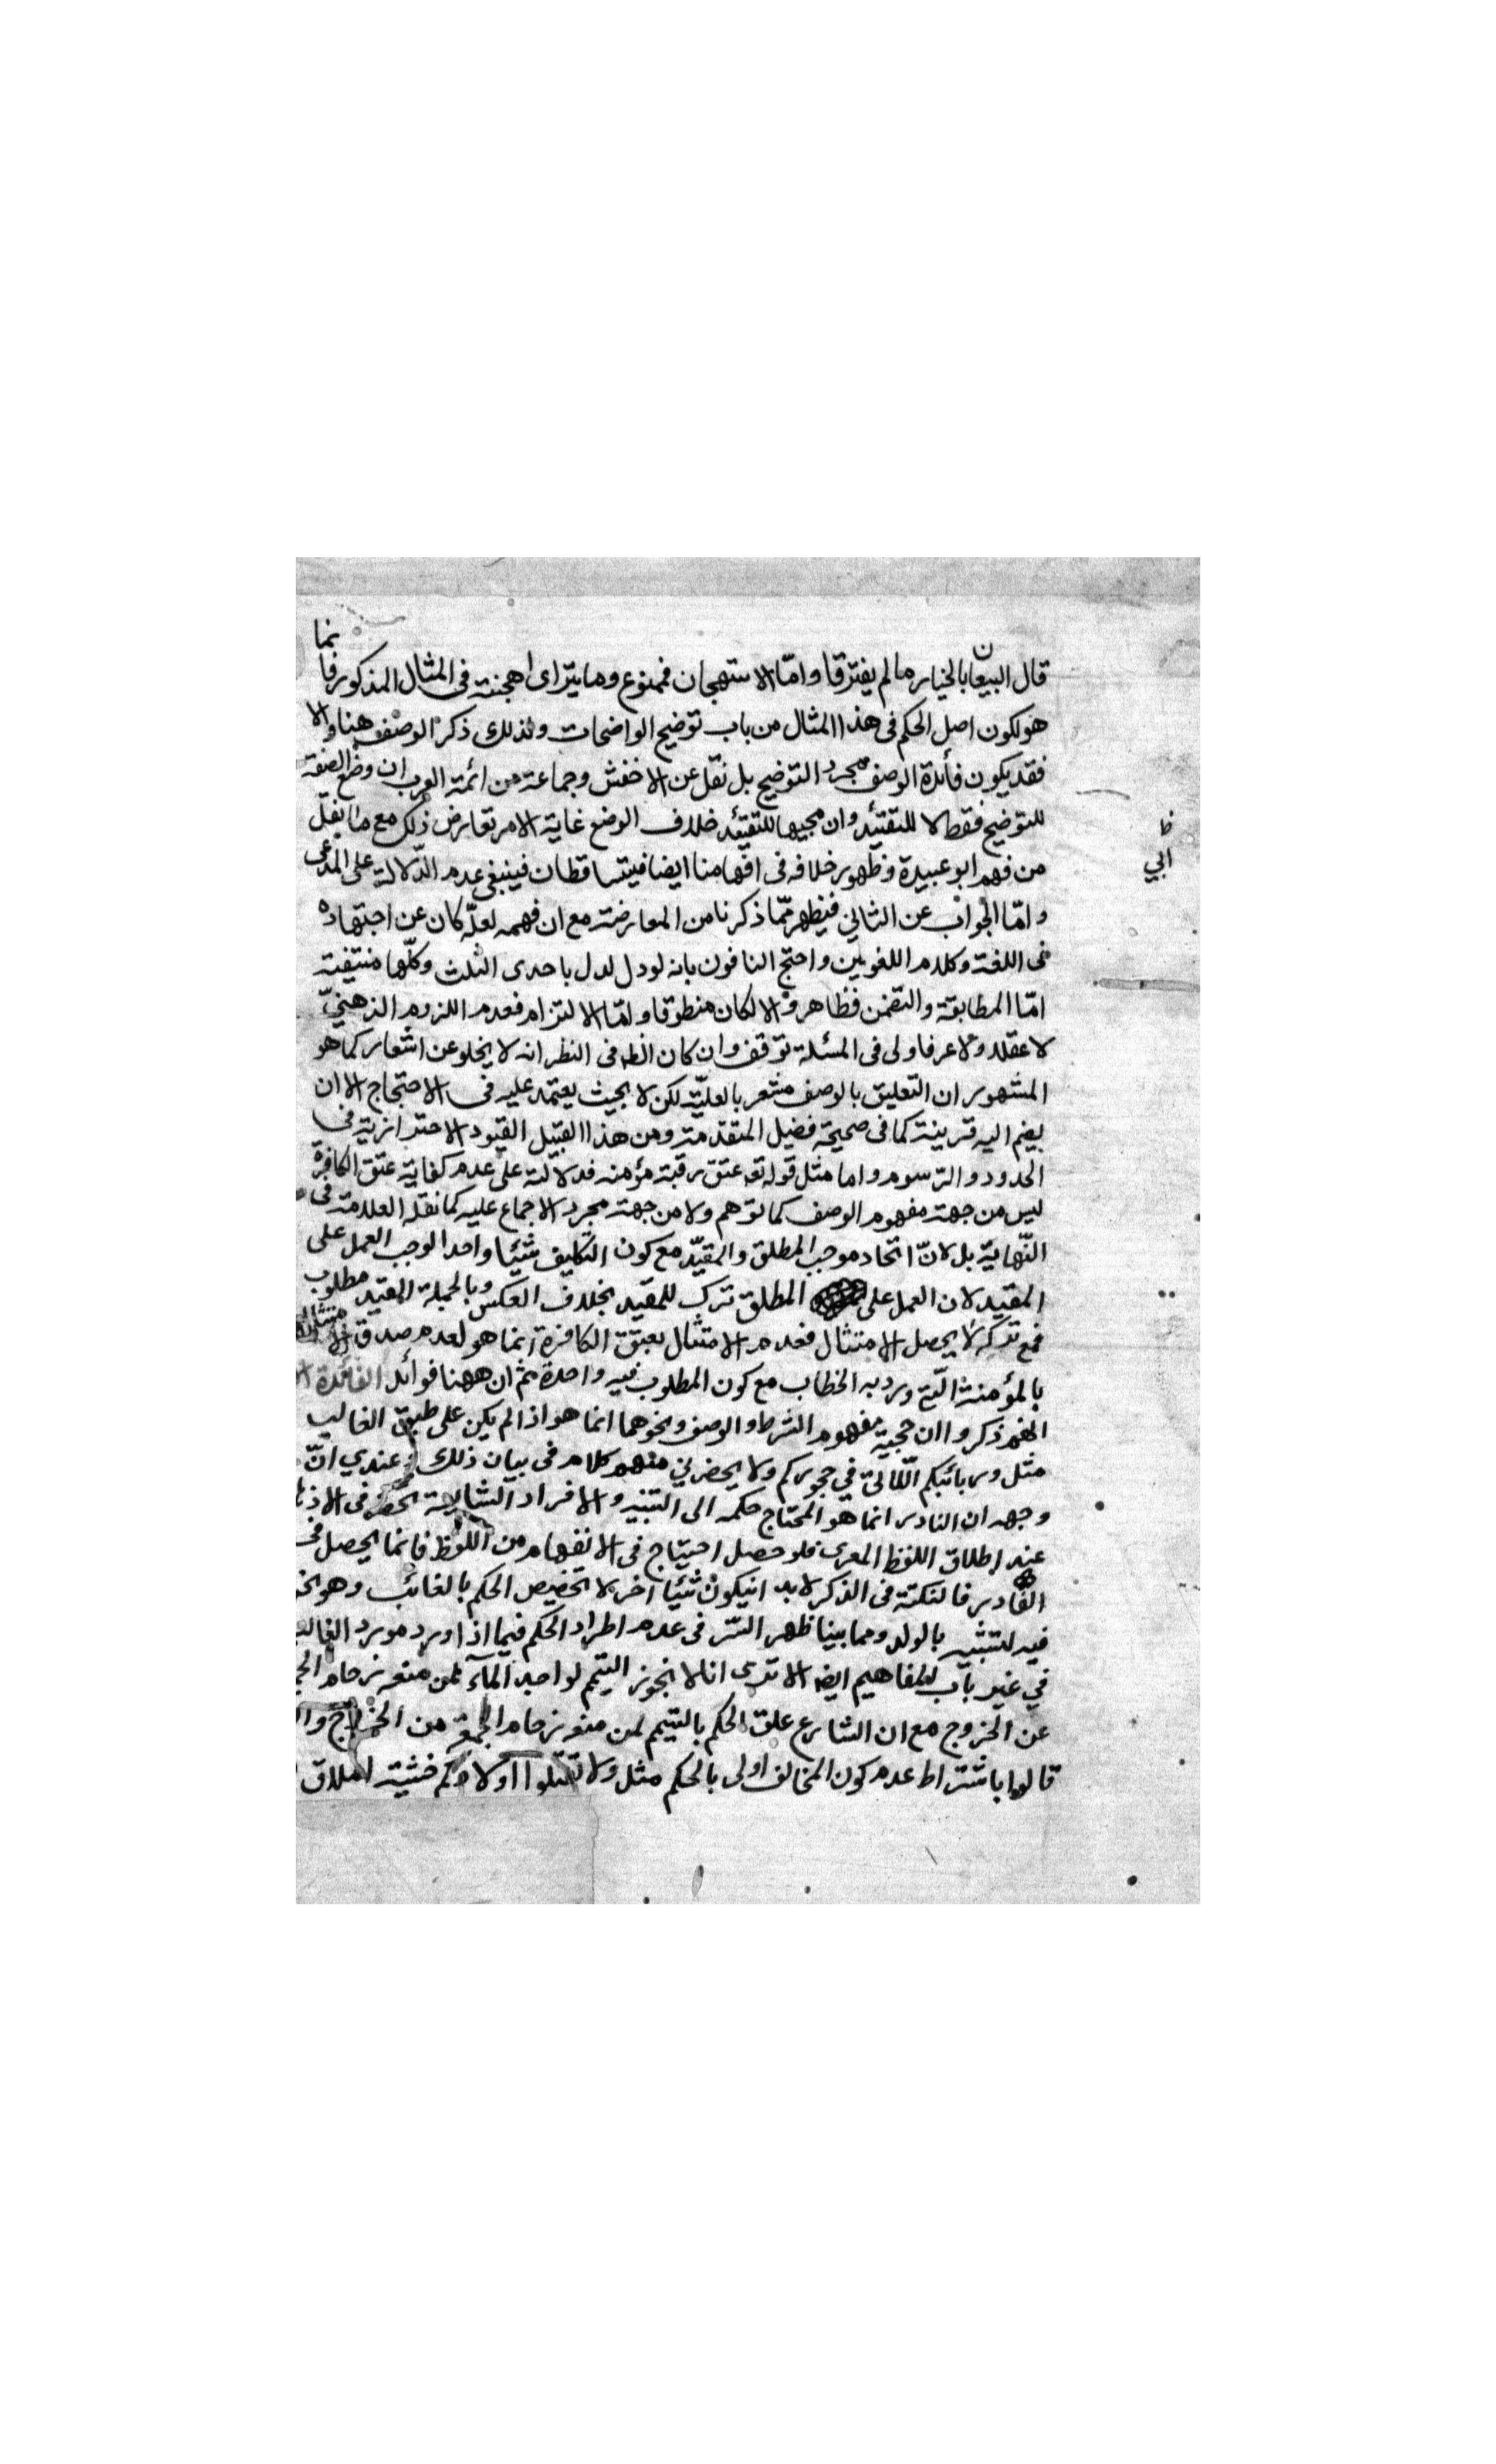 قال البيعان بالخيار ما لم يفترقا وامّا الاستهجان فممنوع وما يتراى اهجنته فى المثال المذكور فانما
هو لكون اصل الحكم فى هذا المثال من باب توضيح الواضحات ولذلك ذكر الوصف هنا والا
فقد يكون فائدة الوصف مجرد التوضيح بل نقل عن الاخفش وجماعة من ائمة العرب ان وضع الصفة
للتوضيح فقط لا للتقييد وان مجيها للتقييد خلاف الوضع غاية الامر تعارض ذلك مع ما نقل
من فهم ابو عبيدة وظهور خلافه فى افهامنا ايضا فيتساقطان فينبغى عدم الدّلالة على المدعى
ظ
ابي
وامّا الجواب عن الثاني فيظهر ممّا ذكرنا من المعارضة مع ان فهمه لعلّه كان عن اجتهاده
فى اللغة وكلام اللغويين واحتج النافون بانه لو دل لدل باحدى الثلث وكلّها منتفية
امّا المطابقة والتضمن فظاهر والا لكان منطوقا وامّا الالتزام فعدم اللزوم الذهنيّ
لا عقلا ولا عرفا ولى فى المسئلة توقف وان كان الظ فى النظر انه لا يخلو عن اشعار كما هو
المشهور ان التعليق بالوصف مشعر بالعليّة لكن لا بحيث يعتمد عليه فى الاحتجاج الا ان
يضم اليه قرينة كما فى صحيحة فضيل المتقدمة ومن هذا القبيل القيود الاحترازية فى
الحدود والرسوم واما مثل قوله تع عتق رقبة مؤمنه فدلالته على عدم كفاية عتق الكافرة
ليس من جهة مفهوم الوصف كما توهم ولا من جهة مجرد الاجماع عليه كما نقله العلامة فى
النّهاية بل لانّ اتحاد موجب المطلق والمقيّد مع كون التكليف شيئا واحدا اوجب العمل على
المقيد لان العمل على المطلق ترك للمقيد بخلاف العكس وبالجملة المقيد مطلوب
فمع تركه لا يحصل الامتثال فعدم الامتثال بعتق الكافرة انما هو لعدم صدق الامتثال
بالمؤمنة الّتي ورد به الخطاب مع كون المطلوب فيه واحدة ثم ان ههنا فوائد الفائدة
انهم ذكروا ان حجية مفهوم الشرط والوصف ونحوهما انما هو اذا لم يكن على طبق الغالب
مثل وربائبكم اللّاتى في حجوركم ولا يحضرني منهم كلام فى بيان ذلك وعندي انّ
وجهه ان النادر انما هو المحتاج حكمه الى التنبيه والافراد الشايعة تحضر فى الاذ
عند اطلاق اللفظ المعرى فلو حصل احتياج فى الانفهام من اللفظ فانما يحصل فى
النادر فالنكتة فى الذكر لا بد ان يكون شيئا اخر لا تخصيص الحكم بالغائب وهو
فيه لتشبيه بالولد ومما بينا ظهر السّر فى عدم اطراد الحكم فيما اذا ورد مورد الغالب
في غير باب المفاهيم ايضا الا ترى انا لا نجوز التيمم لواجد المآء لمن منعه زحام الج
عن الخروج مع ان الشارع علق الحكم بالتيمم لمن منعه زحام الجمعة من الخروج وا
قالوا باشتراط عدم كون المخالف اولى بالحكم مثل ولا تقتلوا اولادكم خشية املاق